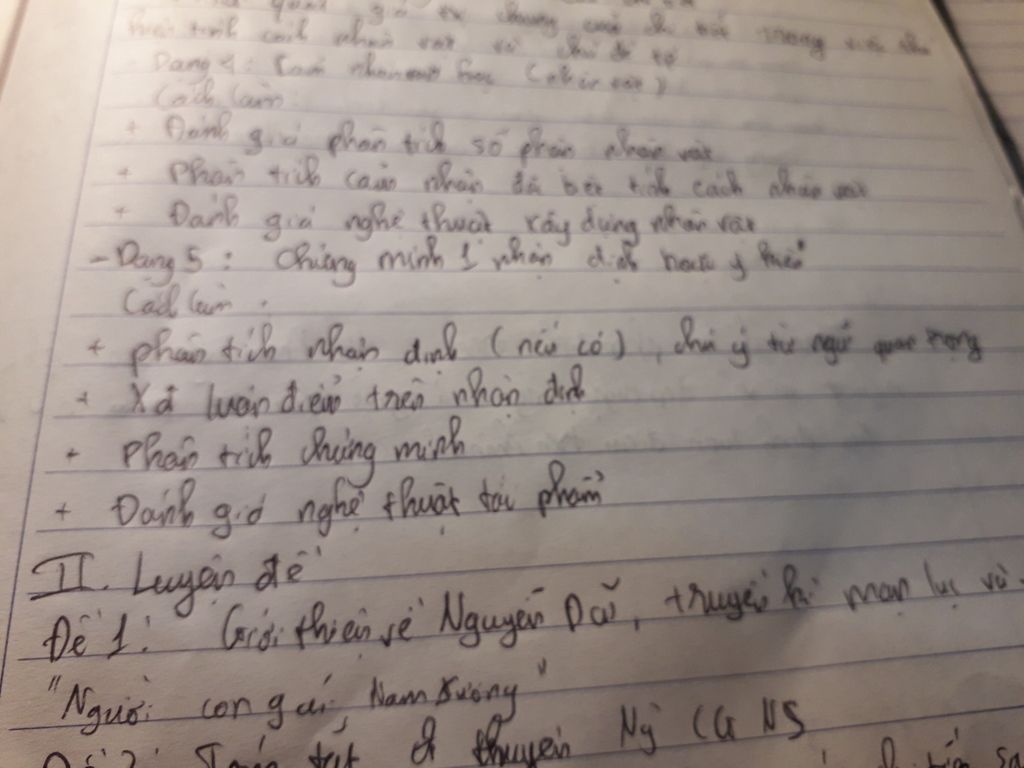 giá
nhân vật
- Dạng 4: Cảm nhận (nhân vật)
Cách làm:
+ Đánh giá phân tích số phận nhân vật
+ Phân tích cảm nhận tính cách nhân vật
+ Đánh giá nghệ thuật xây dựng nhân vật
- Dạng 5: Chứng minh 1 nhận định hoặc ý kiến
Cách làm:
+ phân tích nhận định (nếu có), chú ý từ ngữ quan trọng
+ Xđ luận điểm trên nhận định
+ Phân tích chứng minh
+ Đánh giá nghệ thuật tác phẩm
II. Luyện đề
Đề 1: Giới thiệu về Nguyễn Dữ, truyền kì mạn lục và
"Người con gái Nam Xương"
Đề 2: Tóm tắt NCGNS